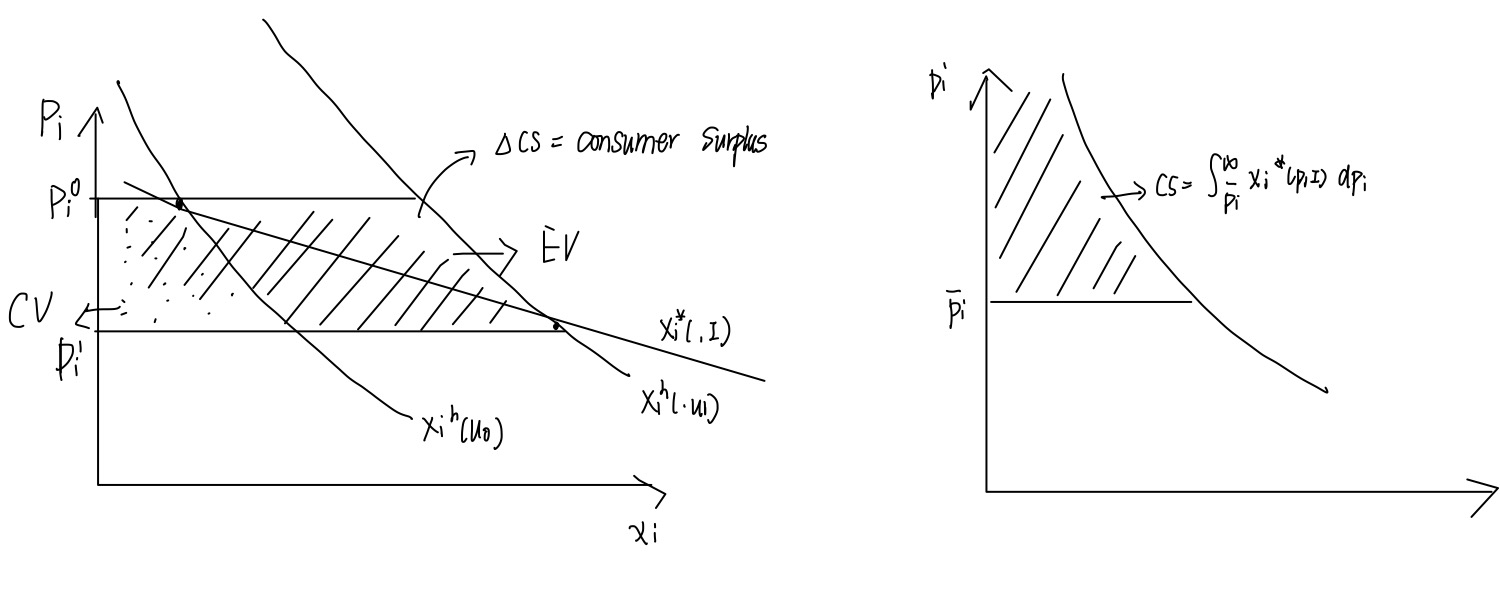 Pi
Pi⁰
ΔCS = consumer surplus
EV
CV
Pi'
xi*(., I)
xiʰ(·u₁)
xiʰ(u₀)
xi
pi
CS = ∫_p̄i^∞ xi*(p,I) dpi
p̄i